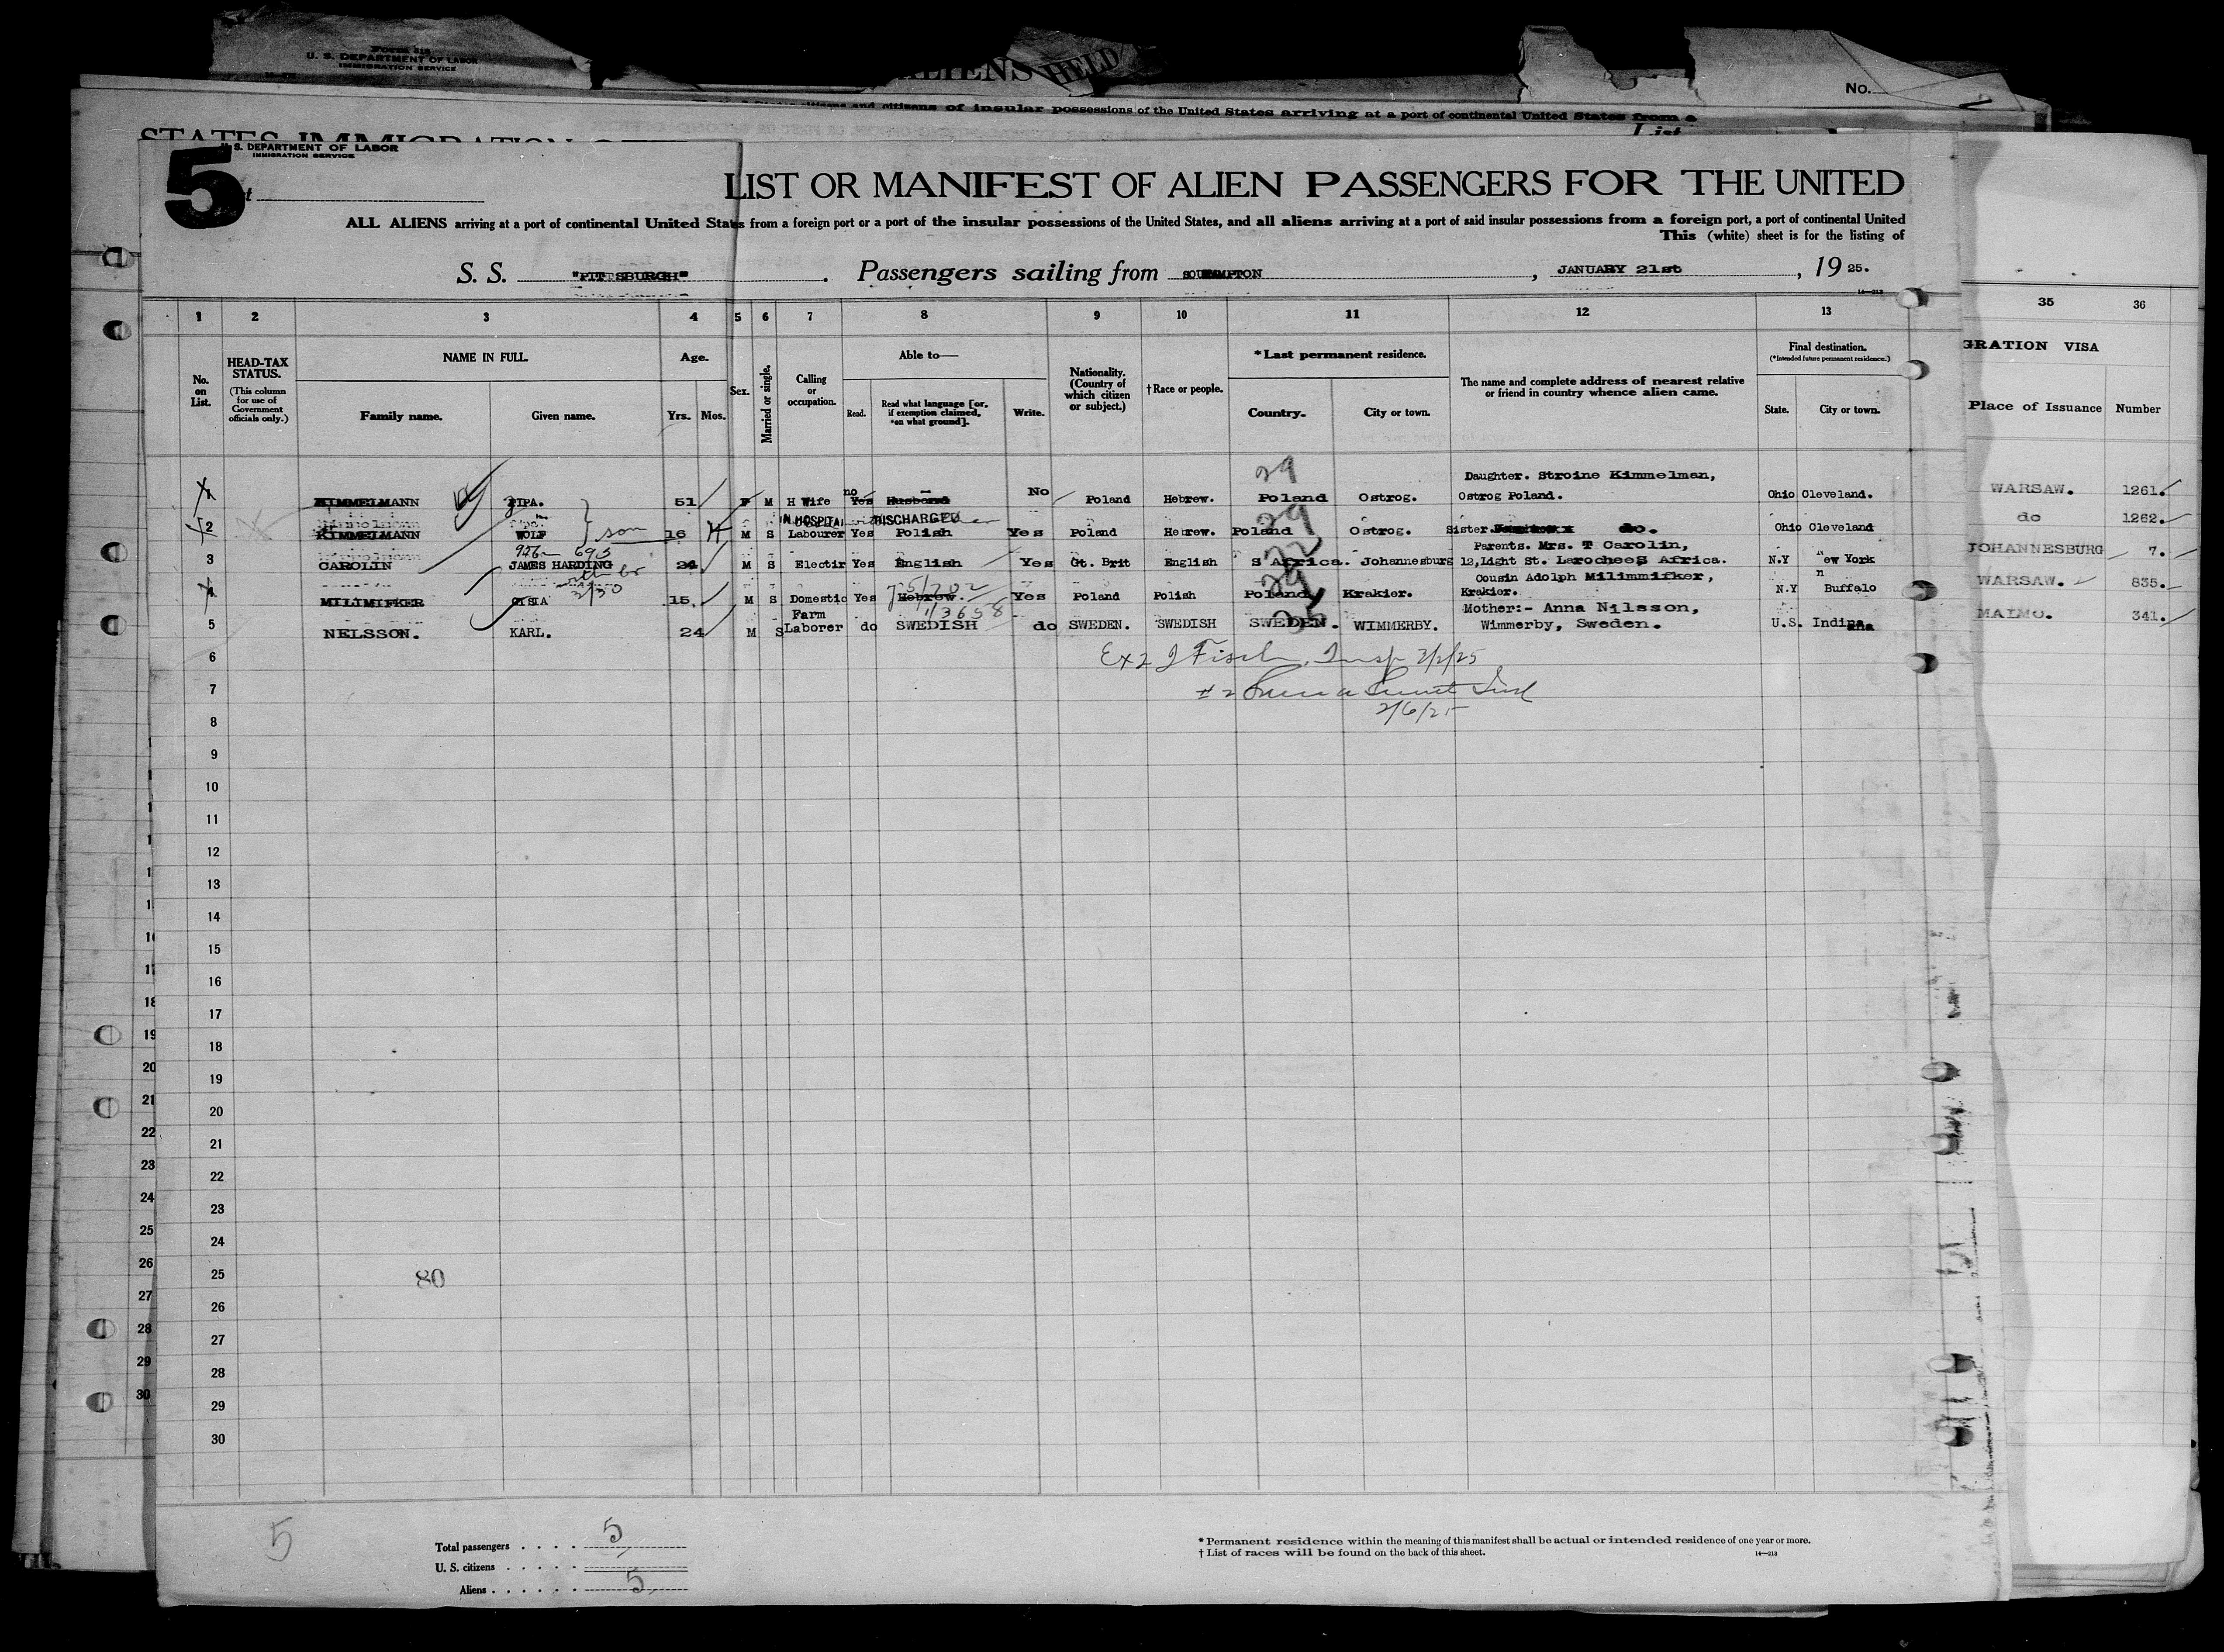 FORM 315
U. S. DEPARTMENT OF LABOR
IMMIGRATION SERVICE
ALIENS HELD
No.
citizens and citizens of insular possessions of the United States arriving at a port of continental United States from a
List
STATES IMMIGRATION
5
U. S. DEPARTMENT OF LABOR
IMMIGRATION SERVICE
LIST OR MANIFEST OF ALIEN PASSENGERS FOR THE UNITED
ALL ALIENS arriving at a port of continental United States from a foreign port or a port of the insular possessions of the United States, and all aliens arriving at a port of said insular possessions from a foreign port, a port of continental United
This (white) sheet is for the listing of
S. S. "PITTSBURGH". Passengers sailing from SOUTHAMPTON, JANUARY 21st, 19 25.
14—213
1 2 3 4 5 6 7 8 9 10 11 12 13 35 36
No. on List.
HEAD-TAX STATUS.
(This column for use of Government officials only.)
NAME IN FULL.
Family name. Given name.
Age.
Yrs. Mos.
Sex.
Married or single.
Calling or occupation.
Able to—
Read. Read what language [or, if exemption claimed, on what ground]. Write.
Nationality. (Country of which citizen or subject.)
†Race or people.
*Last permanent residence.
Country. City or town.
The name and complete address of nearest relative or friend in country whence alien came.
Final destination.
(*Intended future permanent residence.)
State. City or town.
GRATION VISA
Place of Issuance Number
29
Daughter. Stroine Kimmelman,
KIMMELMANN PIPA. 51 F M H Wife no Yes Husband No Poland Hebrew. Poland Ostrog. Ostrog Poland. Ohio Cleveland. WARSAW. 1261.
IN HOSPITAL DISCHARGED
2 KIMMELMANN WOLF son 16 M S Labourer Yes Polish Yes Poland Hebrew. Poland Ostrog. Sister do. Ohio Cleveland do 1262.
926 695
Parents. Mrs. T Carolin,
3 CAROLIN JAMES HARDING 24 M S Electir Yes English Yes Gt. Brit English S Africa. Johannesburg 12, Light St. Larochees Africa. N.Y New York JOHANNESBURG 7.
3/30
Cousin Adolph Milimmifker,
MILIMIFKER GISIA 15 M S Domestic Yes Hebrew. Yes Poland Polish Poland Krakier. Krakier. N.Y Buffalo WARSAW. 835.
113658
Mother:- Anna Nilsson,
5 NELSSON. KARL. 24 M S Farm Laborer do SWEDISH do SWEDEN. SWEDISH SWEDEN. WIMMERBY. Wimmerby, Sweden. U.S. Indiana MALMO. 341.
6 Ex 2 J Fisch Insp 2/2/25
7 #2
8 2/6/25
9
10
11
12
13
14
15
16
17
18
19
20
21
22
23
24
25 80
26
27
28
29
30
18
19
20
21
22
23
24
25
26
27
28
29
30
5
Total passengers . . . . 5
U. S. citizens . . . . .
Aliens . . . . . . 5
* Permanent residence within the meaning of this manifest shall be actual or intended residence of one year or more.
† List of races will be found on the back of this sheet.
14—213